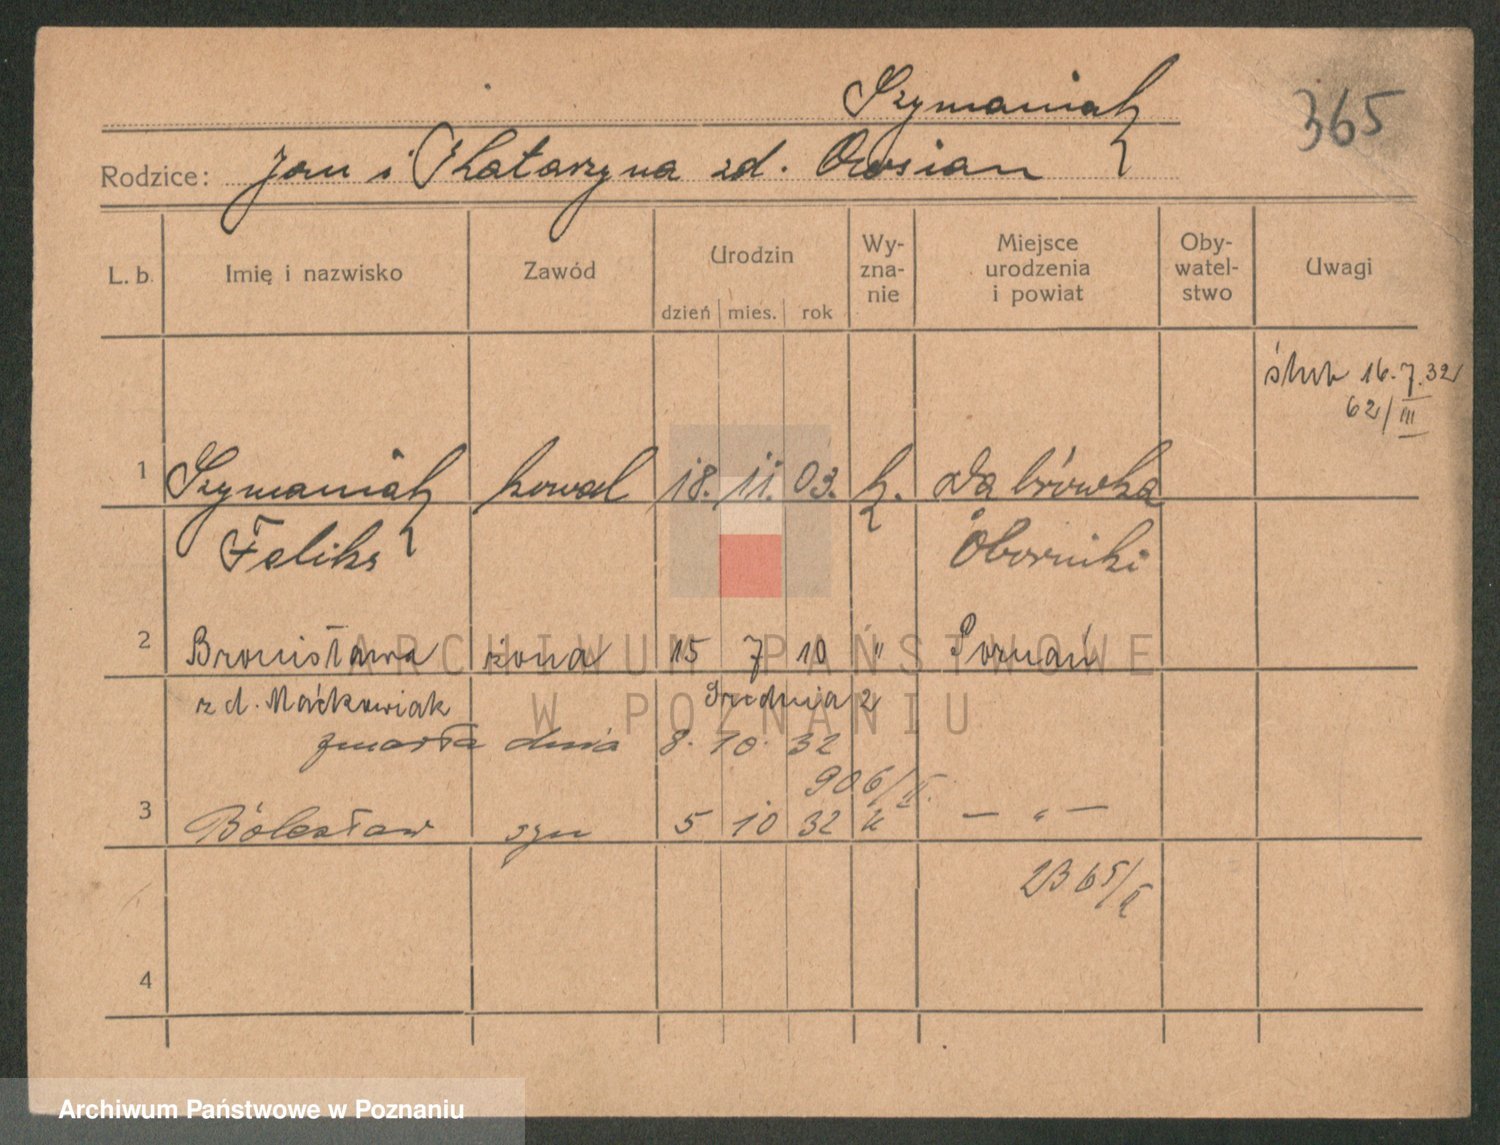 Szymaniak
365
Rodzice: Jan i Katarzyna zd. Owsian
L. b. Imię i nazwisko Zawód Urodzin dzień mies. rok Wy-zna-nie Miejsce urodzenia i powiat Oby-watel-stwo Uwagi
ślub 16.7.32
62/III
1 Szymaniak kowal 18. 11. 03. k. Dąbrówka
Feliks Oborniki
2 Bronisława żona 15 7 10 " Poznań
zd. Maćkowiak Średnia 2
zmarła dnia 8. 10. 32
906/II.
3 Bolesław syn 5 10 32 k — " —
2365/II
4
ARCHIWUM PAŃSTWOWE
W POZNANIU
Archiwum Państwowe w Poznaniu